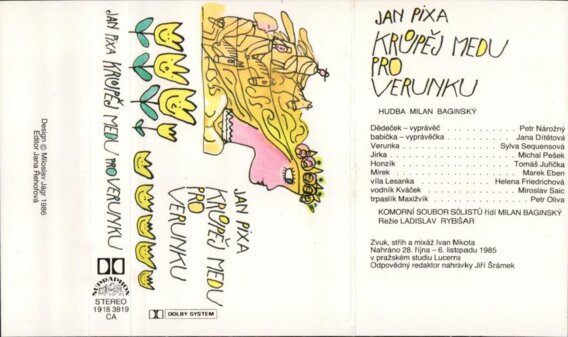 Design © Miloslav Jágr 1986
Editor Jana Řehořová
JAN PIXA KROPĚJ MEDU PRO VERUNKU
SUPRAPHON
STEREO
1918 3819
CA
JAN PIXA
KROPĚJ MEDU
PRO
VERUNKU
DOLBY SYSTEM
JAN PIXA
KROPĚJ MEDU
PRO
VERUNKU
HUDBA MILAN BAGINSKÝ
Dědeček – vyprávěč . . . . . . . . . . Petr Nárožný
babička – vyprávěčka . . . . . . . . . . Jana Dítětová
Verunka . . . . . . . . . . Sylva Sequensová
Jirka . . . . . . . . . . Michal Pešek
Honzík . . . . . . . . . . Tomáš Juřička
Mirek . . . . . . . . . . Marek Eben
víla Lesanka . . . . . . . . . . Helena Friedrichová
vodník Kváček . . . . . . . . . . Miroslav Saic
trpaslík Maxižvík . . . . . . . . . . Petr Oliva
KOMORNÍ SOUBOR SÓLISTŮ řídí MILAN BAGINSKÝ
Režie LADISLAV RYBIŠAR
Zvuk, střih a mixáž Ivan Mikota
Nahráno 28. října – 6. listopadu 1985
v pražském studiu Lucerna
Odpovědný redaktor nahrávky Jiří Šrámek